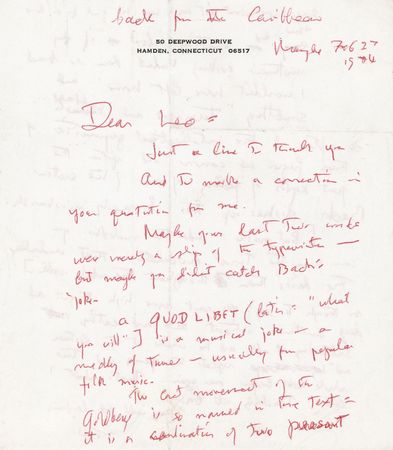 back from the Caribbean
50 DEEPWOOD DRIVE
HAMDEN, CONNECTICUT 06517
Maybe Feb 27
1974
Dear Leo =
Just a line to thank you
And to make a correction in
your quotation for me.
Maybe your last two words
were merely a slip of the typewriter —
but maybe you didn't catch Bach's
joke.
a QUOD LIBET (Latin = "what
you will"] is a musical joke — a
medley of tunes — usually from popular
folk music.
The last movement of the
Goldberg is so named in the text =
it is a combination of two peasant